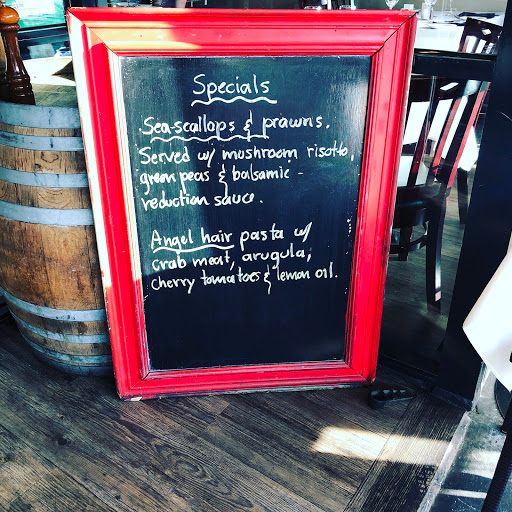 Specials
Sea-scallops & prawns.
Served w/ mushroom risotto,
green peas & balsamic -
reduction sauce.
Angel hair pasta w/
crab meat, arugula,
cherry tomatoes & lemon oil.